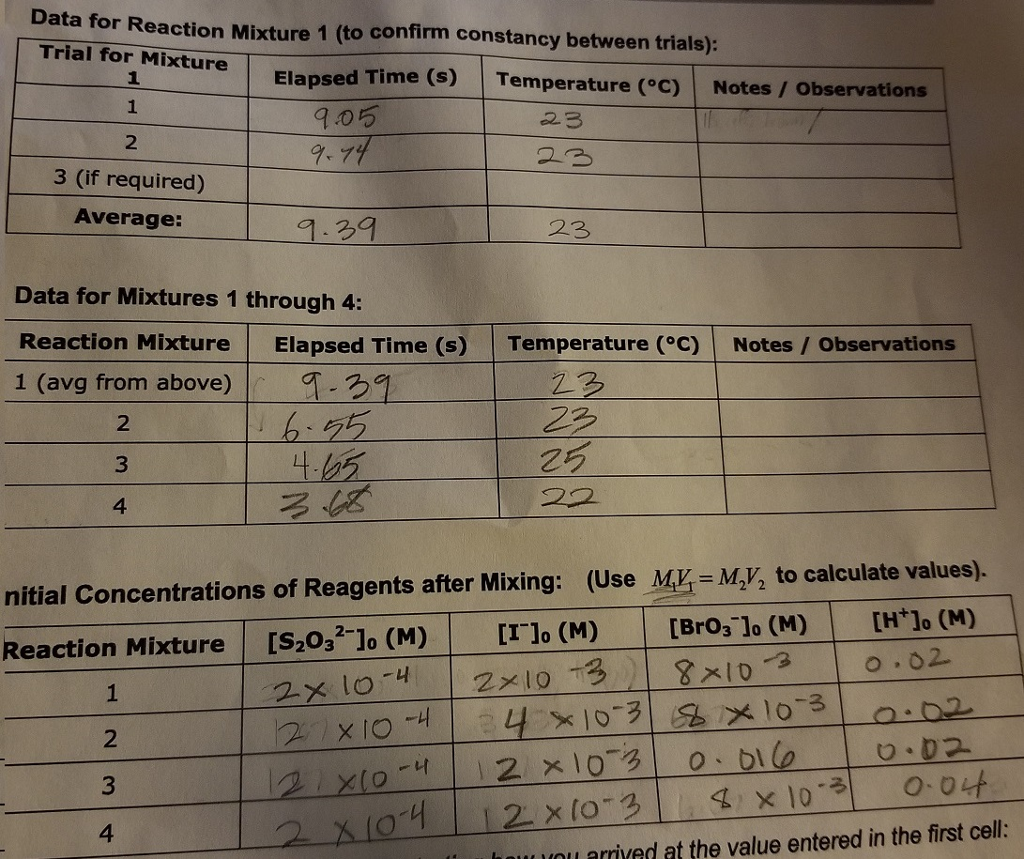 Data for Reaction Mixture 1 (to confirm constancy between trials):
Trial for Mixture 1 Elapsed Time (s) Temperature (°C) Notes / Observations
1 9.05 23
2 9.74 23
3 (if required)
Average: 9.39 23
Data for Mixtures 1 through 4:
Reaction Mixture Elapsed Time (s) Temperature (°C) Notes / Observations
1 (avg from above) 9.39 23
2 6.55 23
3 4.65 25
4 3.68 22
nitial Concentrations of Reagents after Mixing: (Use M₁V₁ = M₂V₂ to calculate values).
Reaction Mixture [S₂O₃²⁻]₀ (M) [I⁻]₀ (M) [BrO₃⁻]₀ (M) [H⁺]₀ (M)
1 2 x 10⁻⁴ 2x10⁻³ 8 x10⁻³ 0.02
2 2 x10⁻⁴ 4 x 10⁻³ 8 x 10⁻³ 0.02
3 2 x10⁻⁴ 2 x 10⁻³ 0.016 0.02
4 2 x 10⁻⁴ 2 x 10⁻³ 8 x 10⁻³ 0.04
how you arrived at the value entered in the first cell: